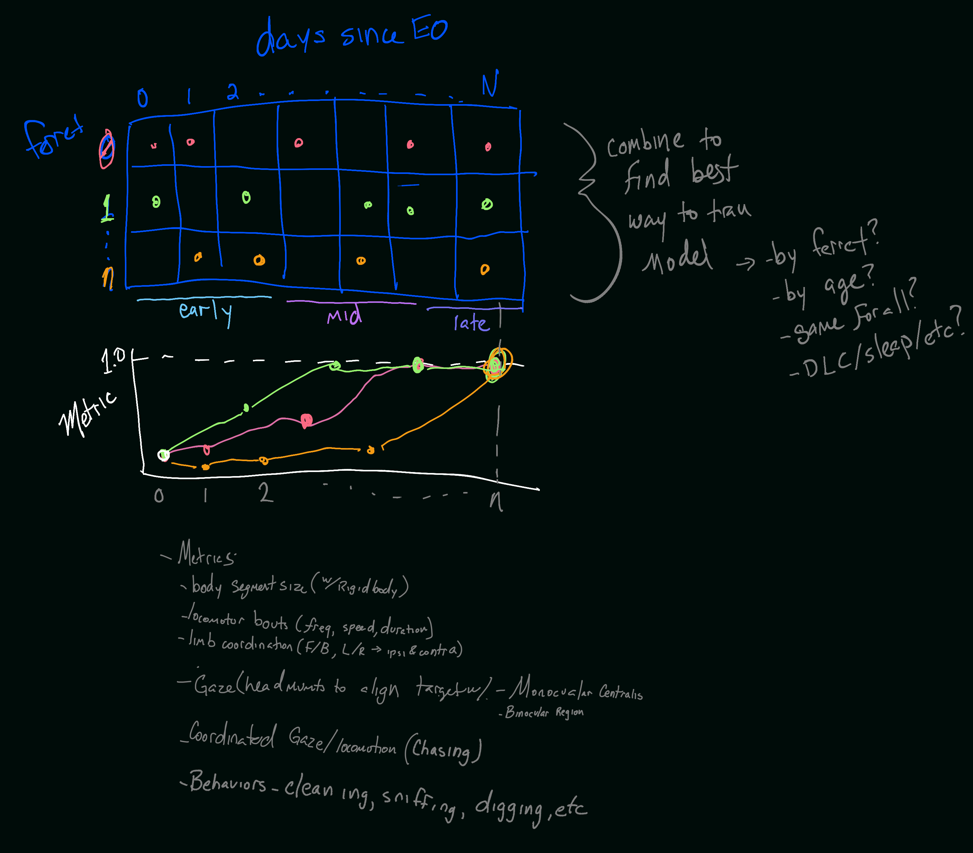 days since EO
0 1 2 . . . - - - . . N
ferret
0
1
n
combine to
find best
way to train
model → - by ferret?
- by age?
- same for all?
- DLC/sleep/etc?
early mid late
1.0
Metric
0 1 2 n
- Metrics:
- body segment size (w/ Rigid body)
- locomotor bouts (freq, speed, duration)
- limb coordination (F/B, L/R → ipsi & contra)
- Gaze (head mvmts to align target w/ - Monocular Centralis
- Binocular Region
- Coordinated Gaze/locomotion (Chasing)
- Behaviors - cleaning, sniffing, digging, etc